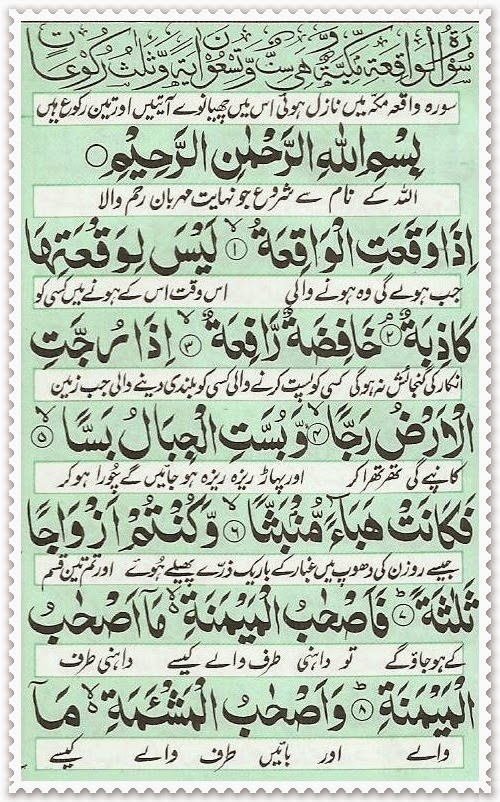 سُوْرَةُ الْوَاقِعَةِ مَكِّيَّةٌ وَّهِيَ سِتٌّ وَّتِسْعُوْنَ اٰيَةً وَّثَلٰثُ رُكُوْعَاتٍ
سورہ واقعہ مکہ میں نازل ہوئی اس میں چھیانوے آیتیں اور تین رکوع ہیں
بِسْمِ اللّٰهِ الرَّحْمٰنِ الرَّحِيْمِ ○
اللہ کے نام سے شروع جو نہایت مہربان رحم والا
اِذَا وَقَعَتِ الْوَاقِعَةُ ۙ﴿۱﴾ لَيْسَ لِوَقْعَتِهَا
جب ہولے گی وہ ہونے والی اس وقت اس کے ہونے میں کسی کو
كَاذِبَةٌ ۘ﴿۲﴾ خَافِضَةٌ رَّافِعَةٌ ۙ﴿۳﴾ اِذَا رُجَّتِ
انکار کی گنجائش نہ ہوگی کسی کو پست کرنے والی کسی کو بلندی دینے والی جب زمین
الْاَرْضُ رَجًّا ۙ﴿۴﴾ وَّبُسَّتِ الْجِبَالُ بَسًّا ۙ﴿۵﴾
کانپے گی تھرتھرا کر اور پہاڑ ریزہ ریزہ ہو جائیں گے چُورا ہو کر
فَكَانَتْ هَبَآءً مُّنْۢبَثًّا ۙ﴿۶﴾ وَّكُنْتُمْ اَزْوَاجًا
جیسے روزن کی دھوپ میں غبار کے باریک ذرّے پھیلے ہُوئے اور تم تین قسم
ثَلٰثَةً ؕ﴿۷﴾ فَاَصْحٰبُ الْمَيْمَنَةِ ۙ مَاۤ اَصْحٰبُ
کے ہو جاؤ گے تو داہنی طرف والے کیسے داہنی طرف
الْمَيْمَنَةِ ؕ﴿۸﴾ وَاَصْحٰبُ الْمَشْئَمَةِ ۙ مَاۤ
والے اور بائیں طرف والے کیسے